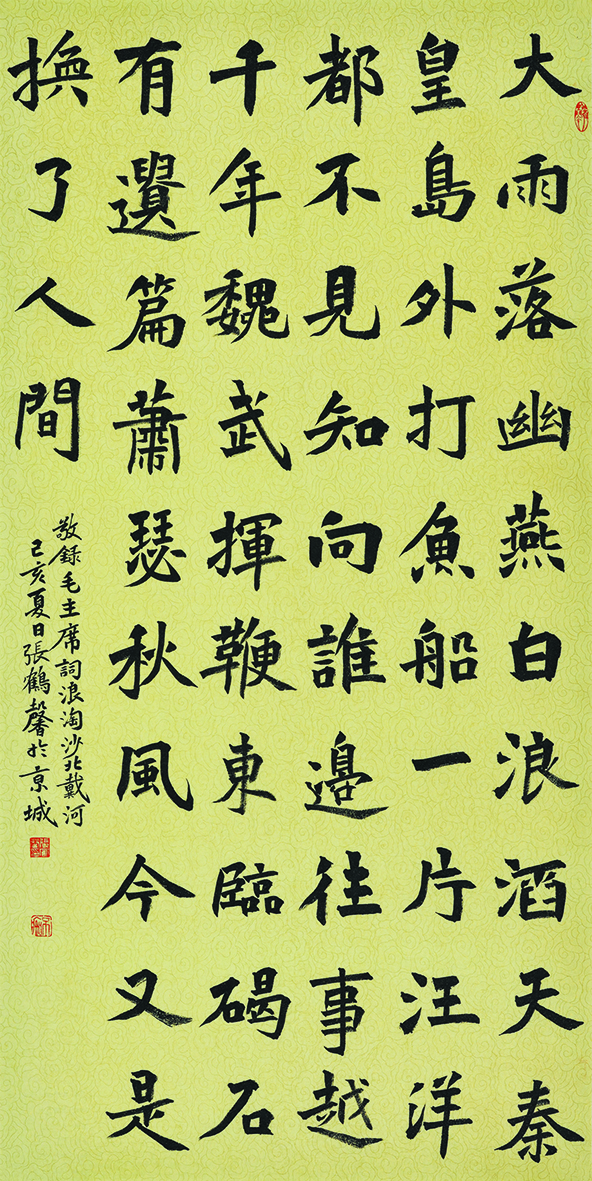 大雨落幽燕白浪滔天秦
皇島外打魚船一片汪洋
都不見知向誰邊往事越
千年魏武揮鞭東臨碣石
有遺篇蕭瑟秋風今又是
換了人間
敬錄毛主席詞浪淘沙北戴河
己亥夏日張鶴馨於京城